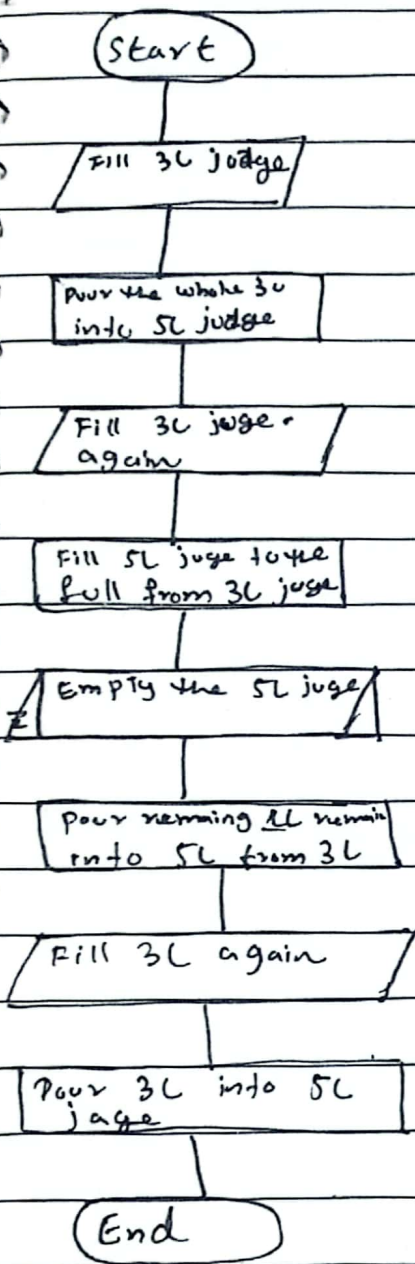 Start
Fill 3L judge
Pour the whole 3L
into 5L judge
Fill 3L juge.
again
Fill 5L juge to the
full from 3L juge
Empty the 5L juge
Pour remaing 1L remain
into 5L from 3L
Fill 3L again
Pour 3L into 5L
jage
End